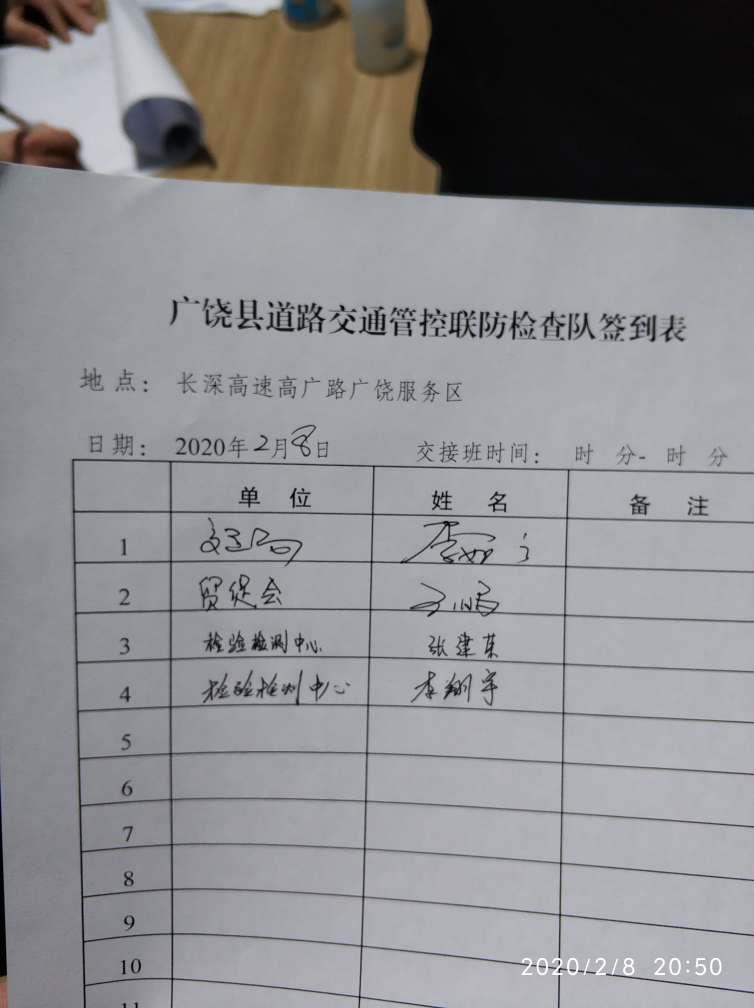 广饶县道路交通管控联防检查队签到表
地点： 长深高速高广路广饶服务区
日期： 2020年2月8日 交接班时间： 时 分- 时 分
单 位 姓 名 备 注
1
2 贸促会
3 检验检测中心 张建东
4 检验检测中心 李翔宇
5
6
7
8
9
10
11
2020/2/8 20:50